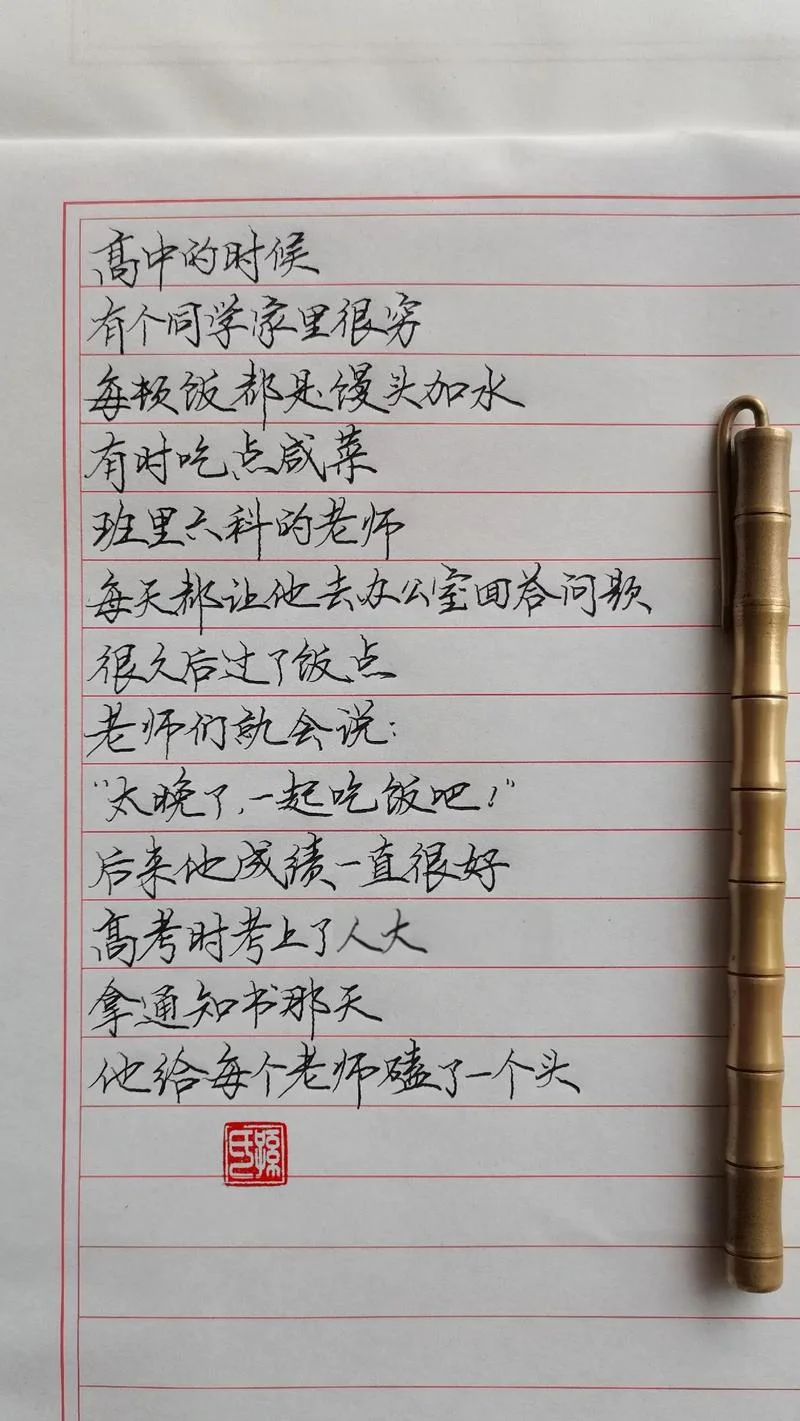 高中的时候
有个同学家里很穷
每顿饭都是馒头加水
有时吃点咸菜
班里六科的老师
每天都让他去办公室回答问题
很久后过了饭点
老师们就会说:
“太晚了,一起吃饭吧!”
后来他成绩一直很好
高考时考上了人大
拿通知书那天
他给每个老师磕了一个头
孫氏